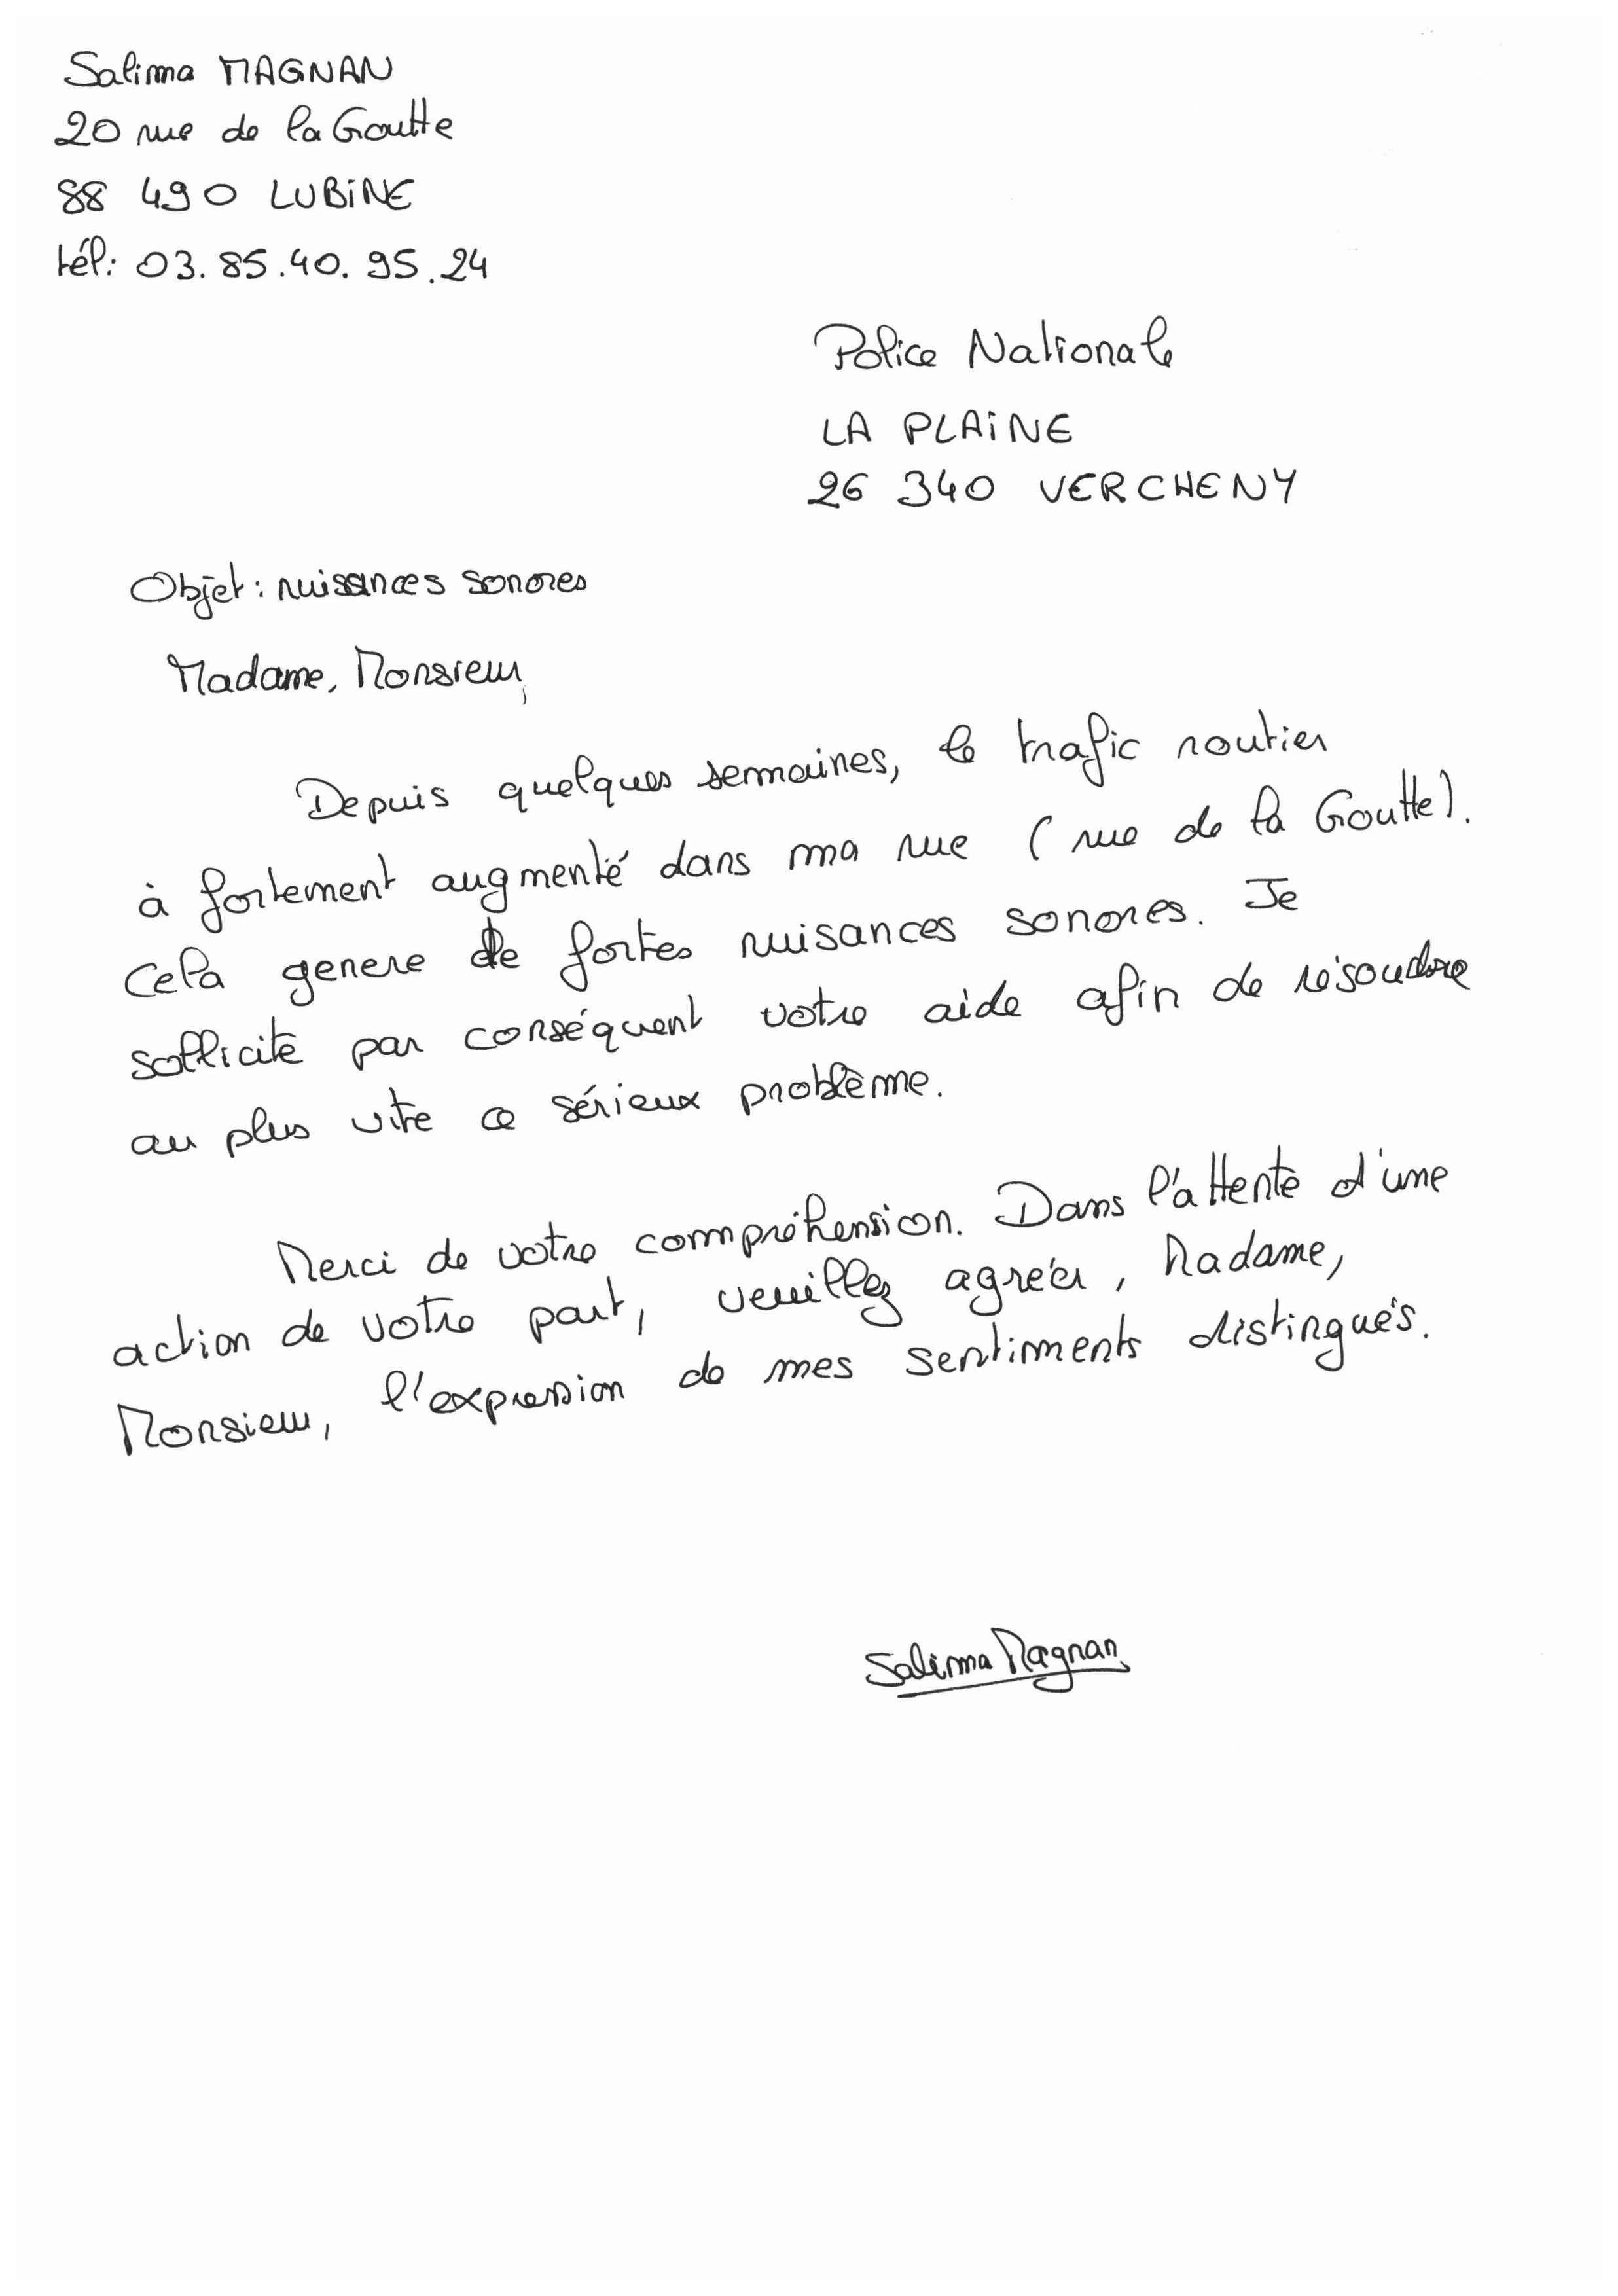 Salima MAGNAN
20 rue de la Goutte
88 490 LUBINE
tél: 03.85.40.95.24
Police Nationale
LA PLAINE
26 340 VERCHENY
Objet: nuisances sonores
Madame, Monsieur,
Depuis quelques semaines, le trafic routier
à fortement augmenté dans ma rue (rue de la Goutte).
Cela genere de fortes nuisances sonores. Je
sollicite par conséquent votre aide afin de résoudre
au plus vite ce sérieux problème.
Merci de votre compréhension. Dans l'attente d'une
action de votre part, veuillez agréer, Madame,
Monsieur, l'expression de mes sentiments distingués.
Salima Magnan